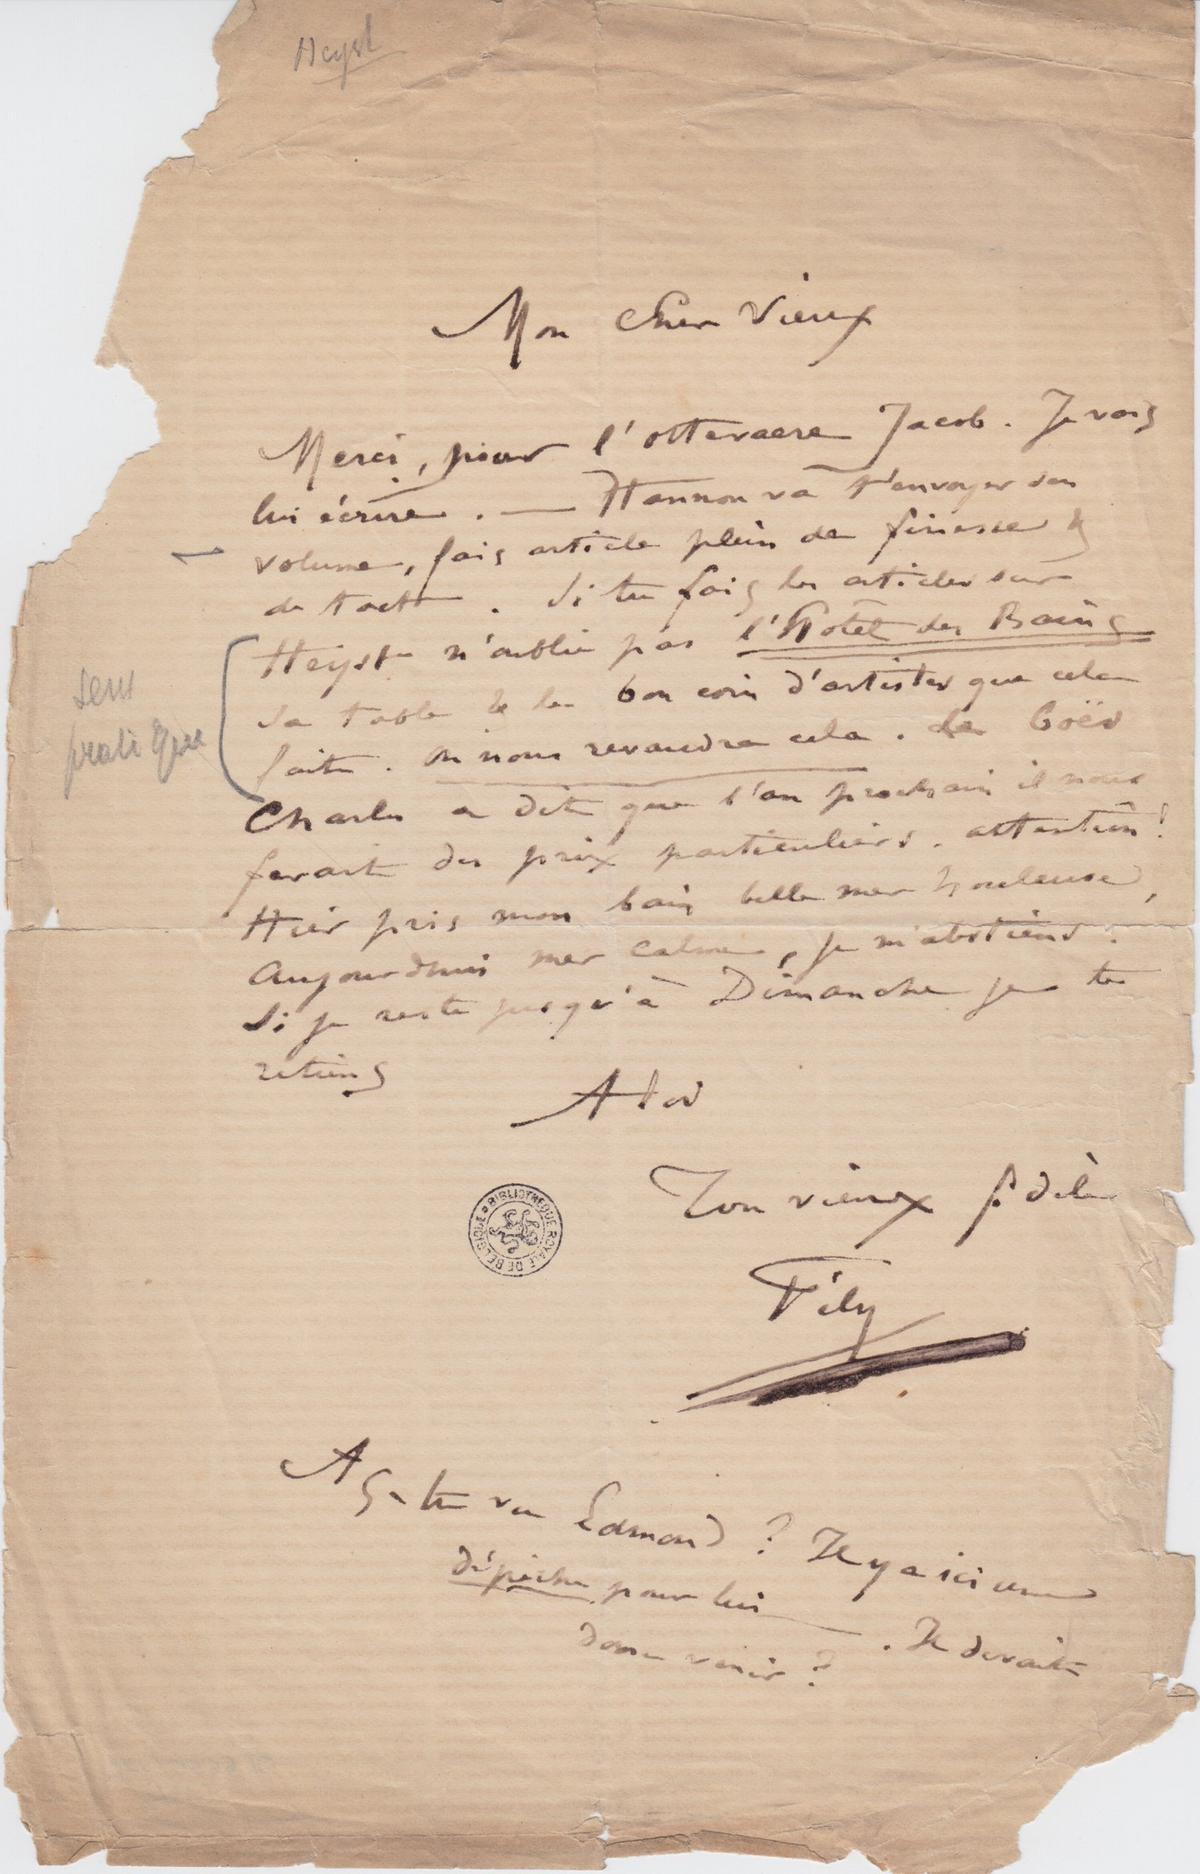 Heyst
Mon Cher Vieux
Merci, pour l'ottevaere Jacob. Je vais
lui écrire. — Hannon va t'envoyer son
volume, fais article plein de finesse &
de tact. Si tu fais les articles sur
Heyst n'oublie pas l'Hôtel des Bains
sa table & le bon coin d'artistes que cela
fait. On nous revaudra cela. Le
Charles a dit que l'an prochain il nous
ferait des prix particuliers. attention!
Hier pris mon bain belle mer houleuse,
Aujourdhui mer calme, je m'abstiens.
Si je reste jusqu'à Dimanche je te
retiens
sens
pratique
A toi
Ton vieux fidèle
Fély
BIBLIOTHEQUE ROYALE DE BELGIQUE
As-tu vu Edmond? Il y a ici une
dépêche pour lui. Il devait
donc venir?